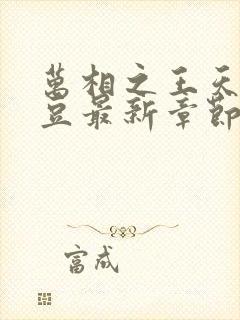 萬相之王天
豆最新章節
富成